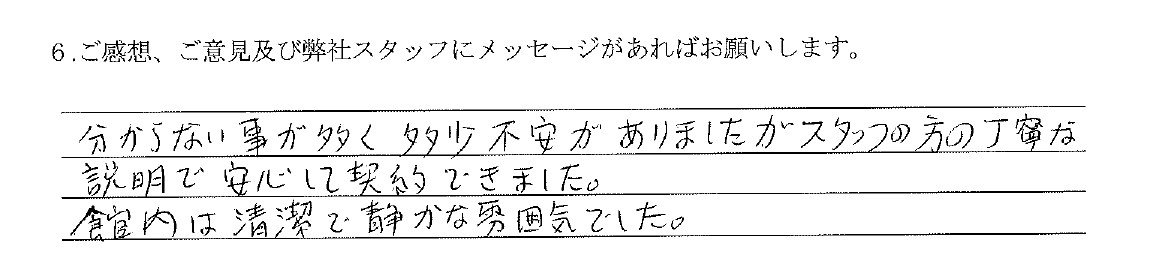 6.ご感想、ご意見及び弊社スタッフにメッセージがあればお願いします。
分からない事が多く 多少 不安が ありましたがスタッフの方の丁寧な
説明で 安心して契約できました。
館内は清潔で静かな雰囲気でした。